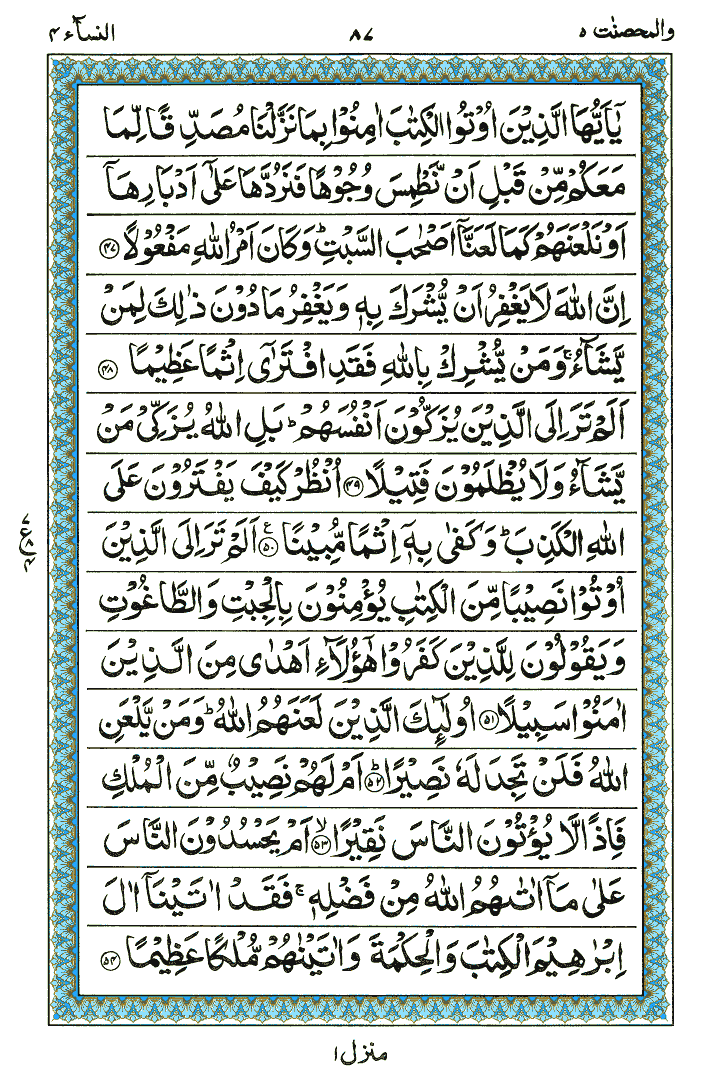 والمحصنٰت ۵ ۸۷ النسآء ۴
يٰۤاَيُّهَا الَّذِيْنَ اُوْتُوا الْكِتٰبَ اٰمِنُوْا بِمَا نَزَّلْنَا مُصَدِّقًا لِّمَا
مَعَكُمْ مِّنْ قَبْلِ اَنْ نَّطْمِسَ وُجُوْهًا فَنَرُدَّهَا عَلٰۤى اَدْبَارِهَاۤ
اَوْ نَلْعَنَهُمْ كَمَا لَعَنَّاۤ اَصْحٰبَ السَّبْتِ ؕ وَكَانَ اَمْرُ اللّٰهِ مَفْعُوْلًا ﴿۴۷﴾
اِنَّ اللّٰهَ لَا يَغْفِرُ اَنْ يُّشْرَكَ بِهٖ وَيَغْفِرُ مَا دُوْنَ ذٰلِكَ لِمَنْ
يَّشَآءُ ۚ وَمَنْ يُّشْرِكْ بِاللّٰهِ فَقَدِ افْتَرٰۤى اِثْمًا عَظِيْمًا ﴿۴۸﴾
اَلَمْ تَرَ اِلَى الَّذِيْنَ يُزَكُّوْنَ اَنْفُسَهُمْ ؕ بَلِ اللّٰهُ يُزَكِّيْ مَنْ
يَّشَآءُ وَلَا يُظْلَمُوْنَ فَتِيْلًا ﴿۴۹﴾ اُنْظُرْ كَيْفَ يَفْتَرُوْنَ عَلَى
اللّٰهِ الْكَذِبَ ؕ وَكَفٰى بِهٖۤ اِثْمًا مُّبِيْنًا ﴿۵۰﴾ ع اَلَمْ تَرَ اِلَى الَّذِيْنَ
اُوْتُوْا نَصِيْبًا مِّنَ الْكِتٰبِ يُؤْمِنُوْنَ بِالْجِبْتِ وَالطَّاغُوْتِ
وَيَقُوْلُوْنَ لِلَّذِيْنَ كَفَرُوْا هٰۤؤُلَآءِ اَهْدٰى مِنَ الَّذِيْنَ
اٰمَنُوْا سَبِيْلًا ﴿۵۱﴾ اُولٰٓئِكَ الَّذِيْنَ لَعَنَهُمُ اللّٰهُ ؕ وَمَنْ يَّلْعَنِ
اللّٰهُ فَلَنْ تَجِدَ لَهٗ نَصِيْرًا ؕ﴿۵۲﴾ اَمْ لَهُمْ نَصِيْبٌ مِّنَ الْمُلْكِ
فَاِذًا لَّا يُؤْتُوْنَ النَّاسَ نَقِيْرًا ۙ﴿۵۳﴾ اَمْ يَحْسُدُوْنَ النَّاسَ
عَلٰى مَاۤ اٰتٰىهُمُ اللّٰهُ مِنْ فَضْلِهٖ ۚ فَقَدْ اٰتَيْنَاۤ اٰلَ
اِبْرٰهِيْمَ الْكِتٰبَ وَالْحِكْمَةَ وَاٰتَيْنٰهُمْ مُّلْكًا عَظِيْمًا ﴿۵۴﴾
۷ ع ۸ ۴
منزل ۱